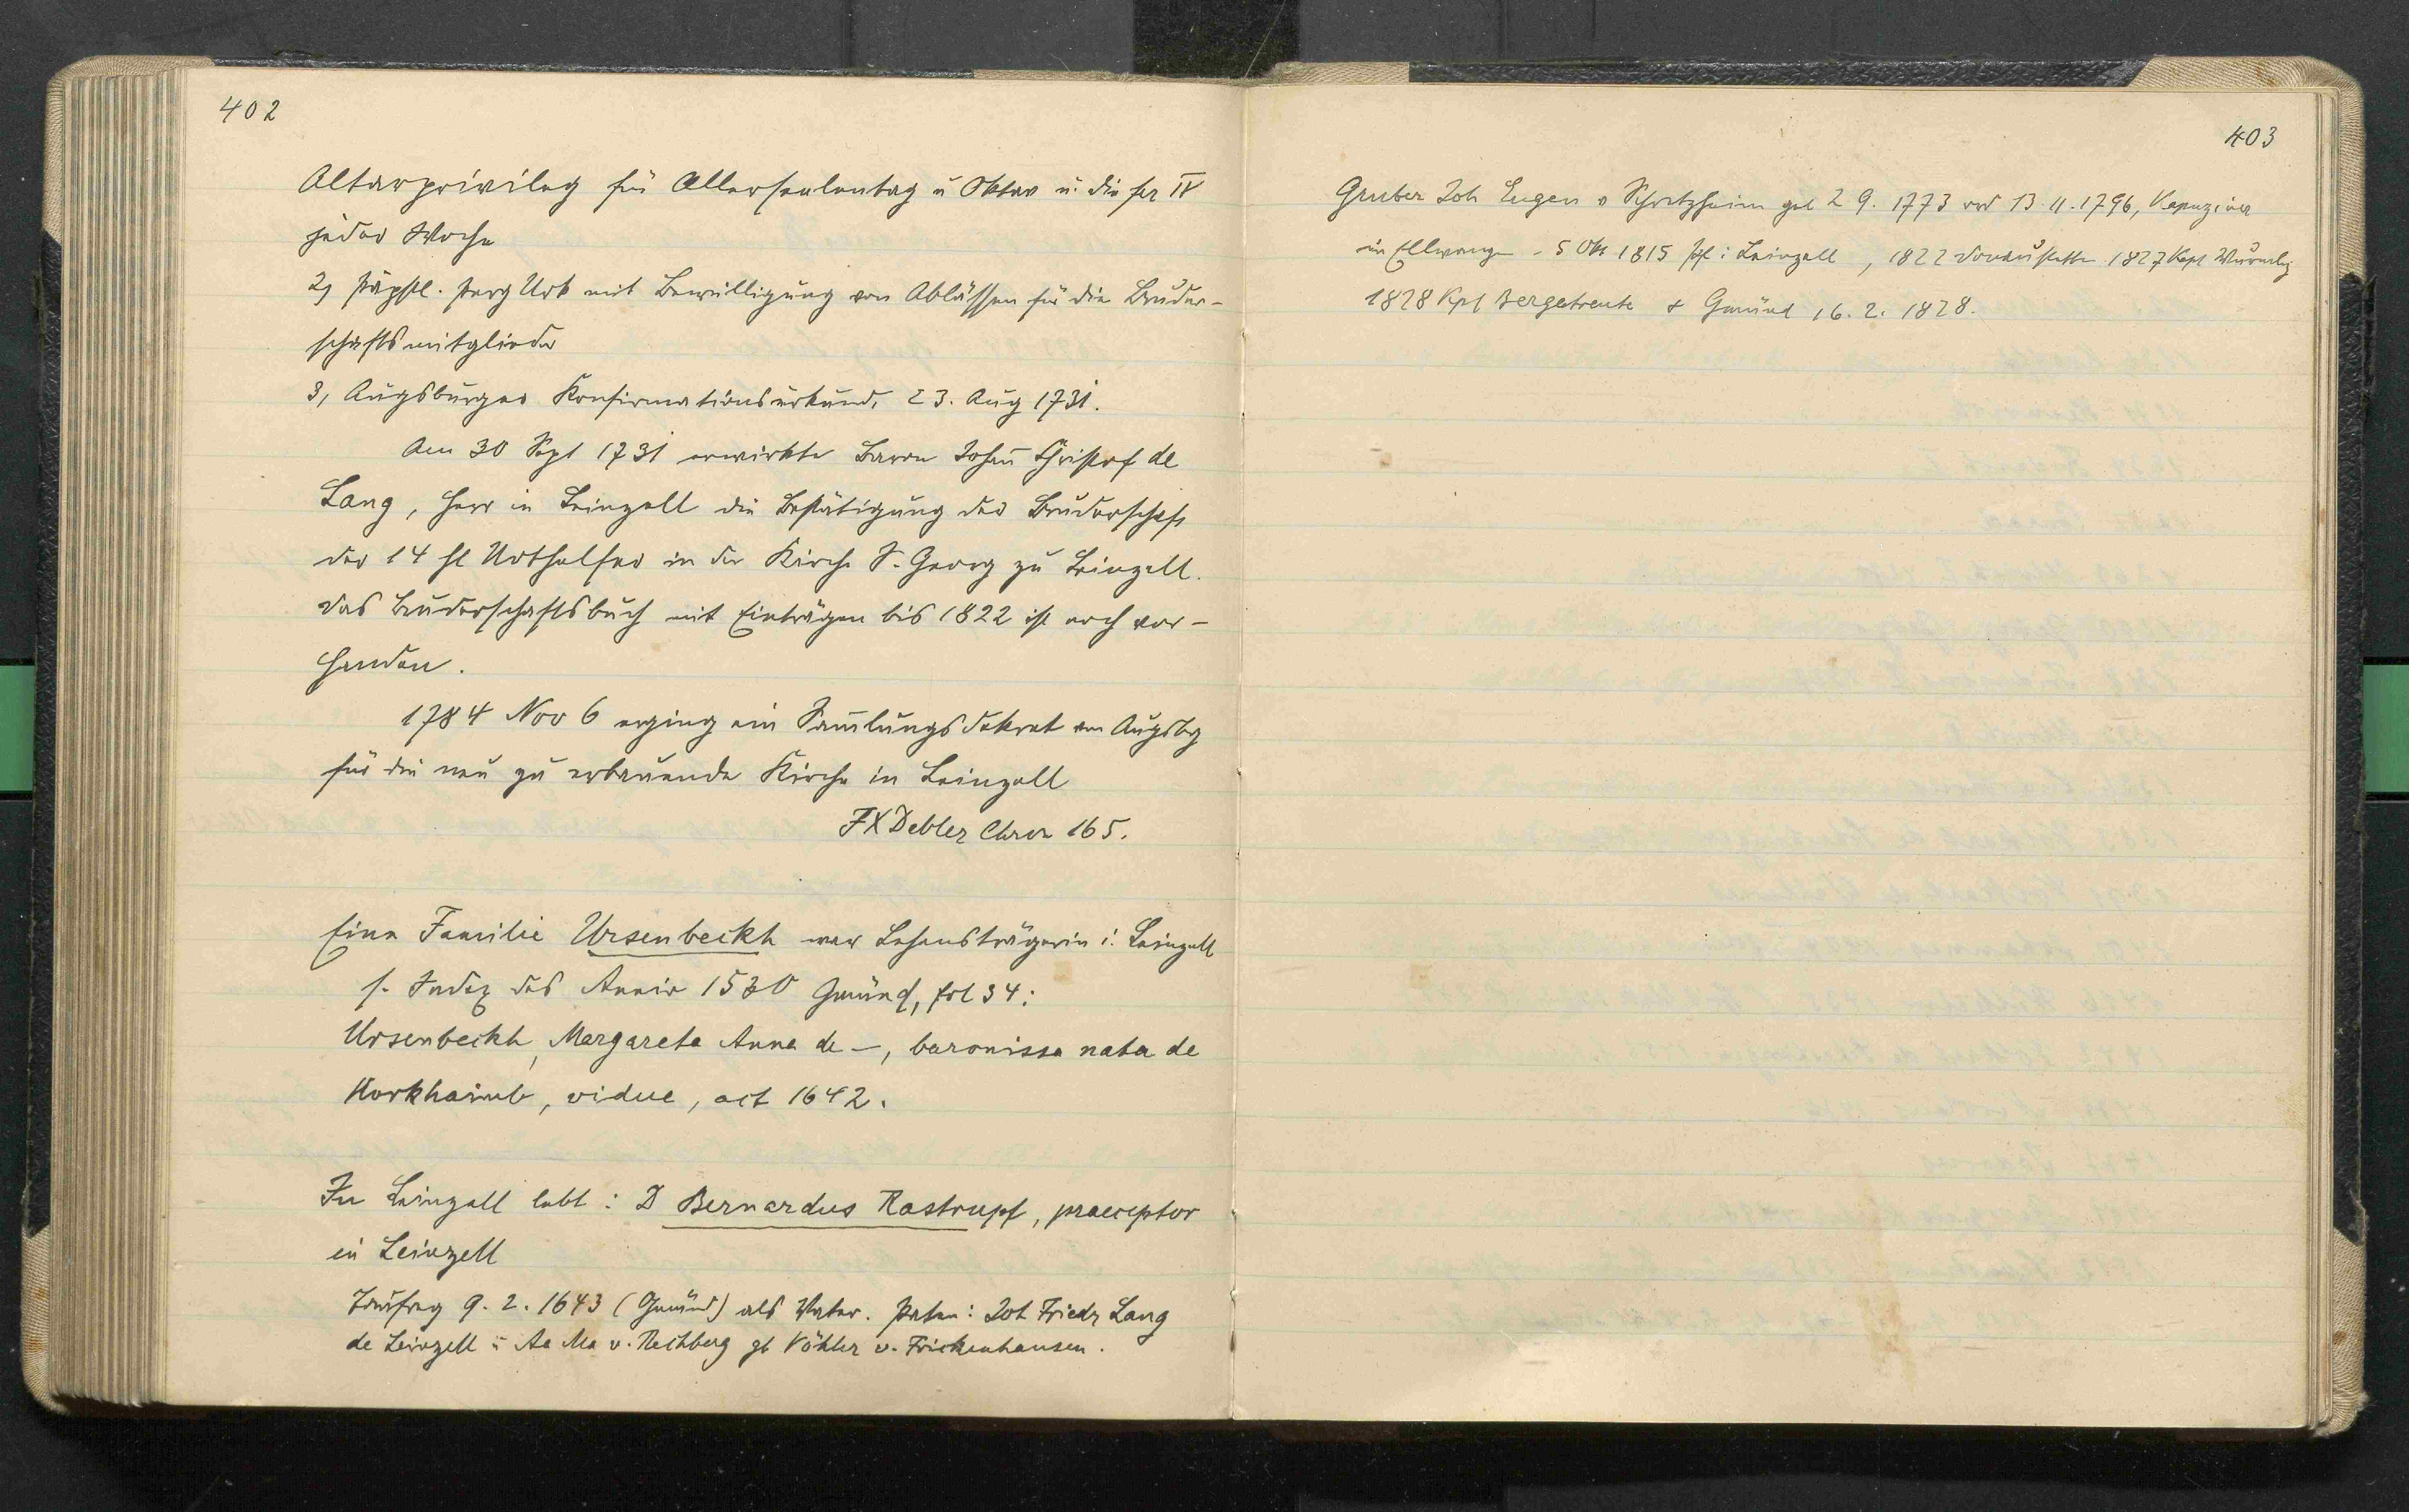 402
Altarprivileg für Allerseelentag u Oktav u. die fer IV
jeder Woche
2, päpstl. Perg Urk mit Bewilligung von Ablässen für die Bruder-
schaftsmitglieder
3, Augsburger Konfirmationsurkund. 23. Aug 1731.
Am 30 Sept 1731 erwirkte Baron Johañ Christof de
Lang, Herr in Leinzell die Bestätigung der Bruderschaft
der 14 hl Nothelfer in der Kirche S. Georg zu Leinzell.
Das Bruderschaftsbuch mit Einträgen bis 1822 ist noch vor-
handen.
1784 Nov 6 erging ein Sam̄lungsdekret von Augsbg
für die neu zu erbauende Kirche in Leinzell
FX Debler Chron 165.
Eine Familie Ursenbeckh war Lehensträgerin i. Leinzell
s. Index des Anniv 1530 Gmünd, fol 34:
Ursenbeckh, Margareta Anna de —, baronissa nata de
Horkhaimb, vidue, act 1642.
In Leinzell lebt: D Bernardus Rastrupf, praeceptor
in Leinzell
Taufreg 9. 2. 1643 (Gmünd) als Vater. Paten: Joh Friedr Lang
de Leinzell u Aa Ma v. Rechberg gb Vöhler v. Frickenhausen.
403
Gruber Joh Eugen v Schretzheim geb 2 9. 1773 ord 13. 11. 1796, Kapuziner
in Ellwangen - 5 Okt 1815 Pf i Leinzell, 1822 Donaustetten 1827 Kapl Wurmlg
1828 Kpl Bergatreute + Gmünd 16. 2. 1828.